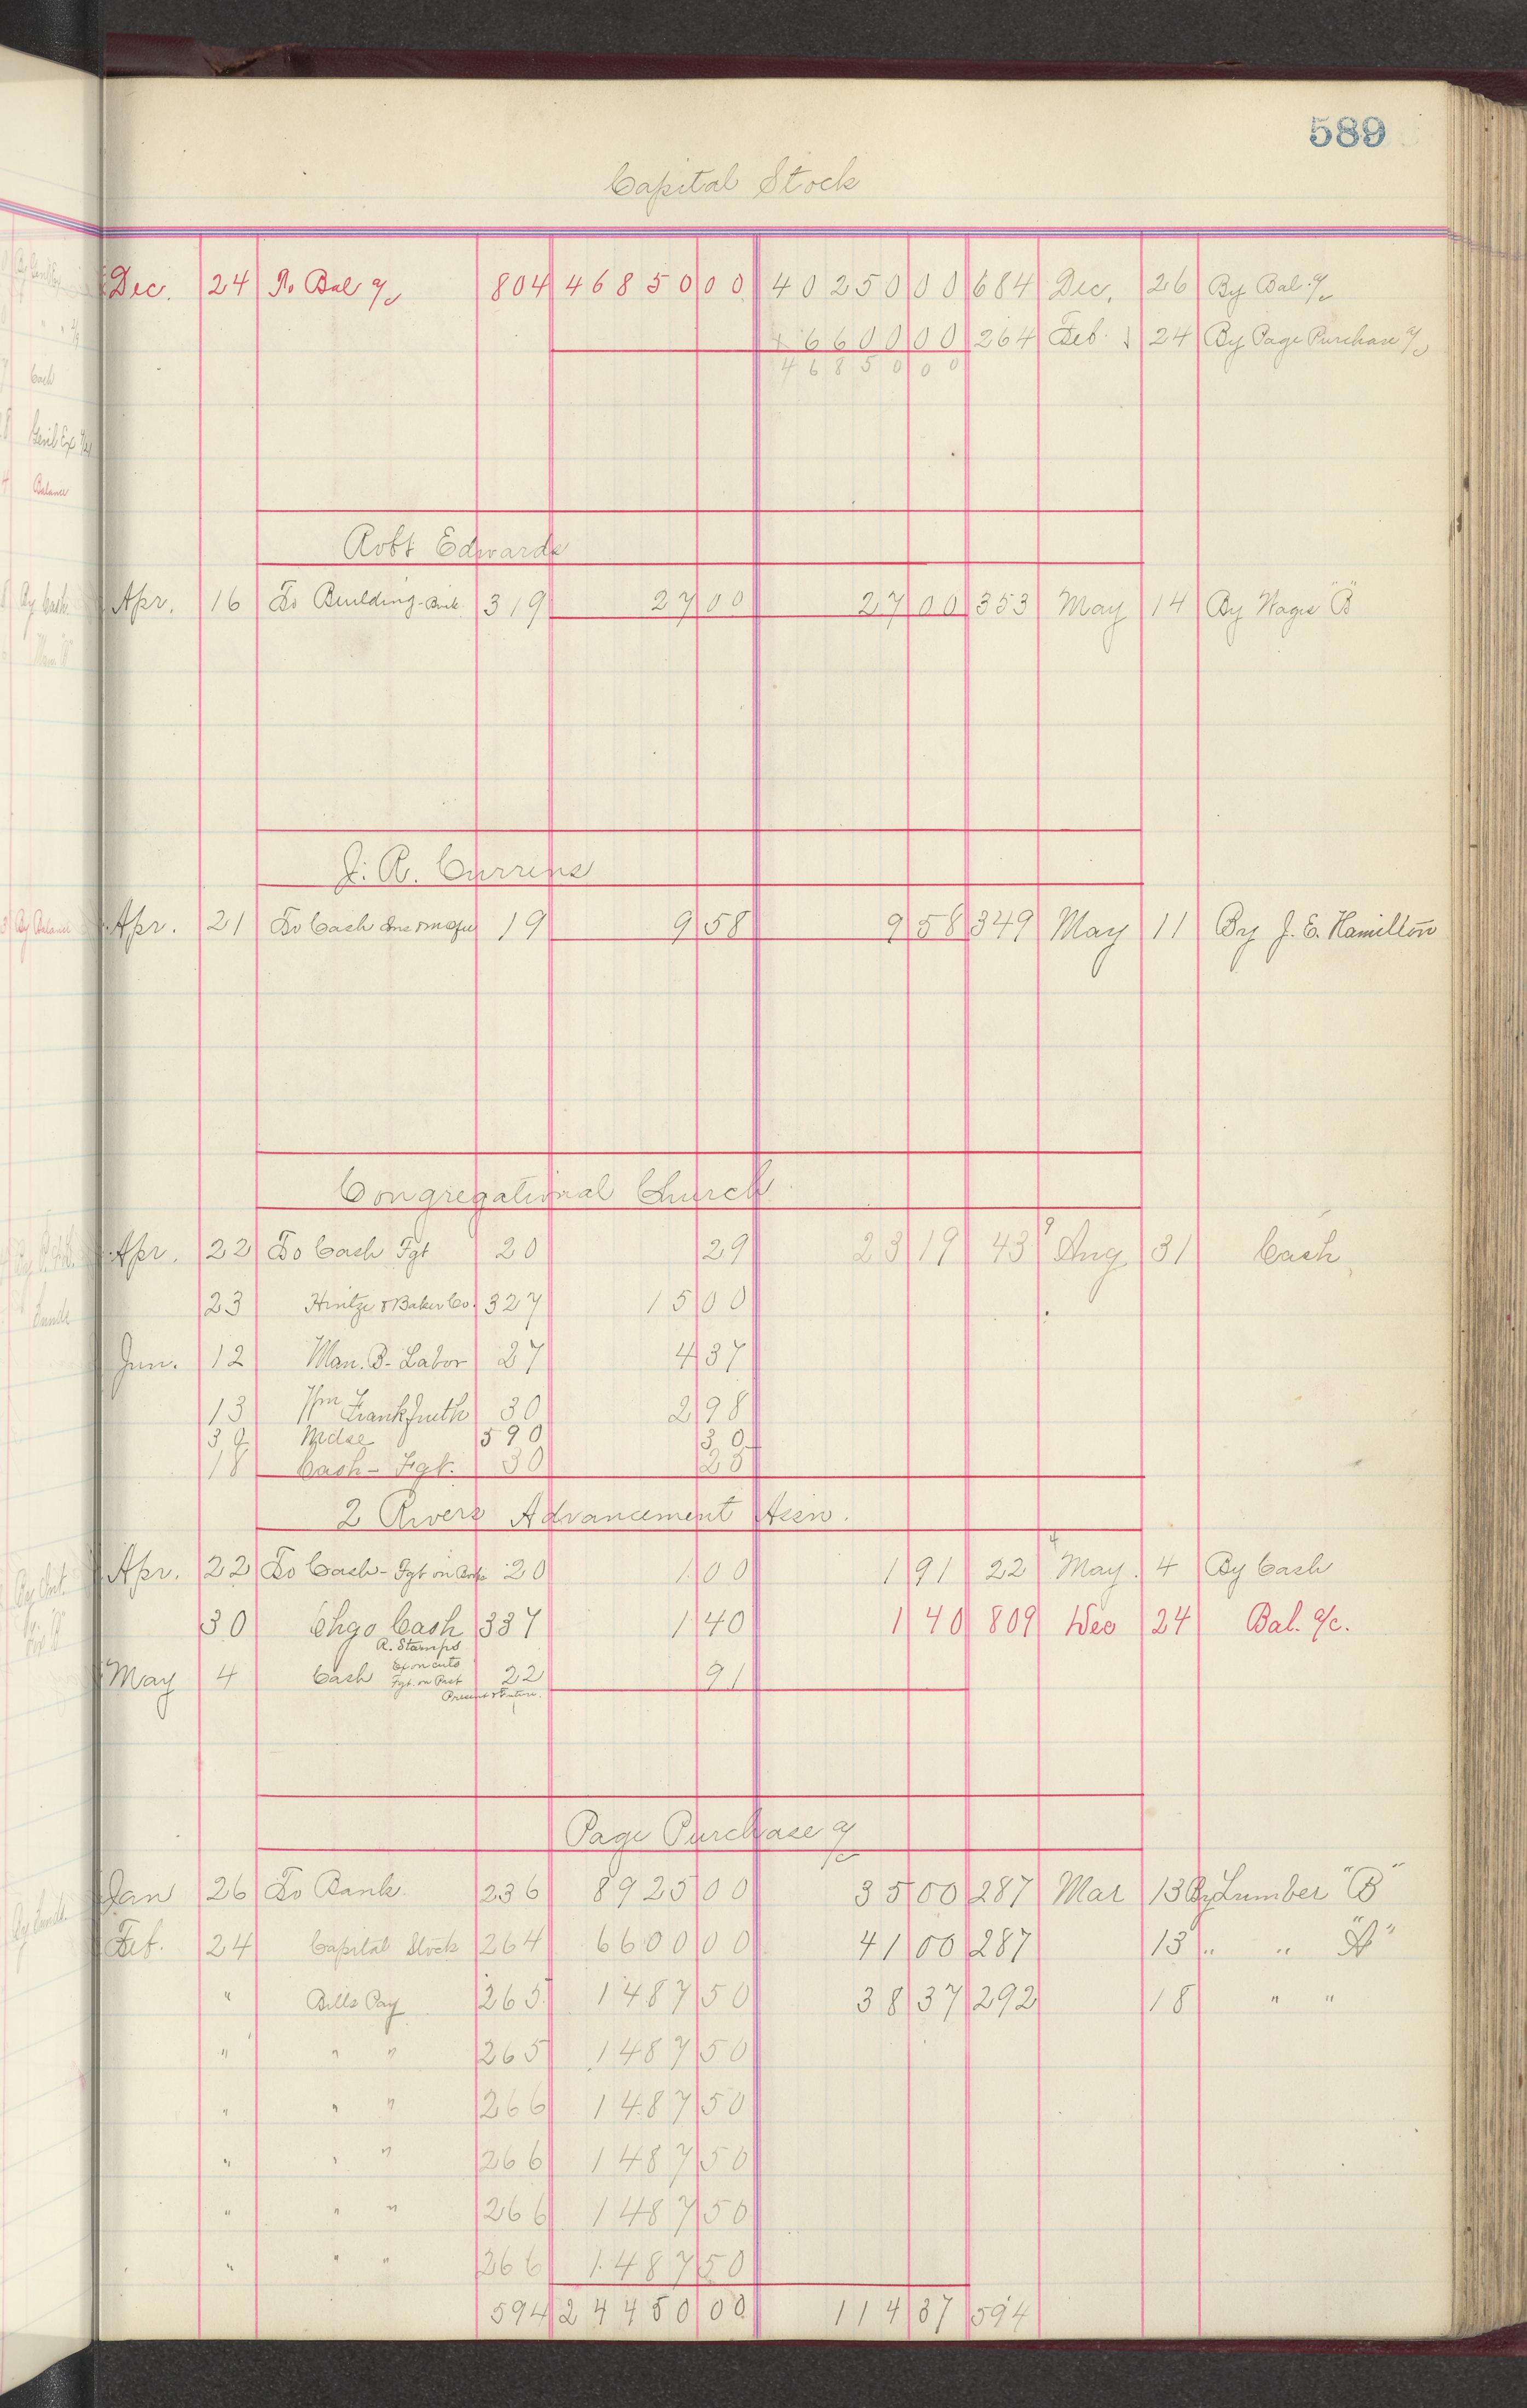 589
Capital Stock
Dec. 24 To Bal a/c 804 46850 00 40250 00 684 Dec. 26 By Bal. a/c
6600 00 264 Feb. 24 By Page Purchase a/c
46850 00
Robt Edwards
Apr. 16 To Building - 319 27 00 27 00 353 May 14 By Wages "B"
J. R. Currens
Apr. 21 To Cash 19 9 58 9 58 349 May 11 By J. E. Hamilton
Congregational Church
Apr. 22 To Cash Fgt 20 29 23 19 43 Aug 31 Cash
23 Hintze & Baker Co. 327 15 00
Jun. 12 Man. B - Labor 27 4 37
13 Wm Frankfurth 30 2 98
30 Mdse 590 30
18 Cash - Fgt. 30 25
2 Rivers Advancement Assn.
4
Apr. 22 To Cash - Fgt on 20 1 00 1 91 22 May 4 By Cash
30 Chgo Cash 337 1 40 1 40 809 Dec 24 Bal. a/c.
R. Stamps
Ex on cuts
May 4 Cash Fgt. on Past 22 91
Present & Future.
Page Purchase a/c
Jan 26 To Bank 236 8925 00 35 00 287 Mar 13 By Lumber "B"
Feb. 24 Capital Stock 264 6600 00 41 00 287 13 " " "A"
" Bills Pay 265 1487 50 38 37 292 18 " "
" " " 265 1487 50
" " " 266 1487 50
" " " 266 1487 50
" " " 266 1487 50
" " " 266 1487 50
594 24450 00 114 37 594